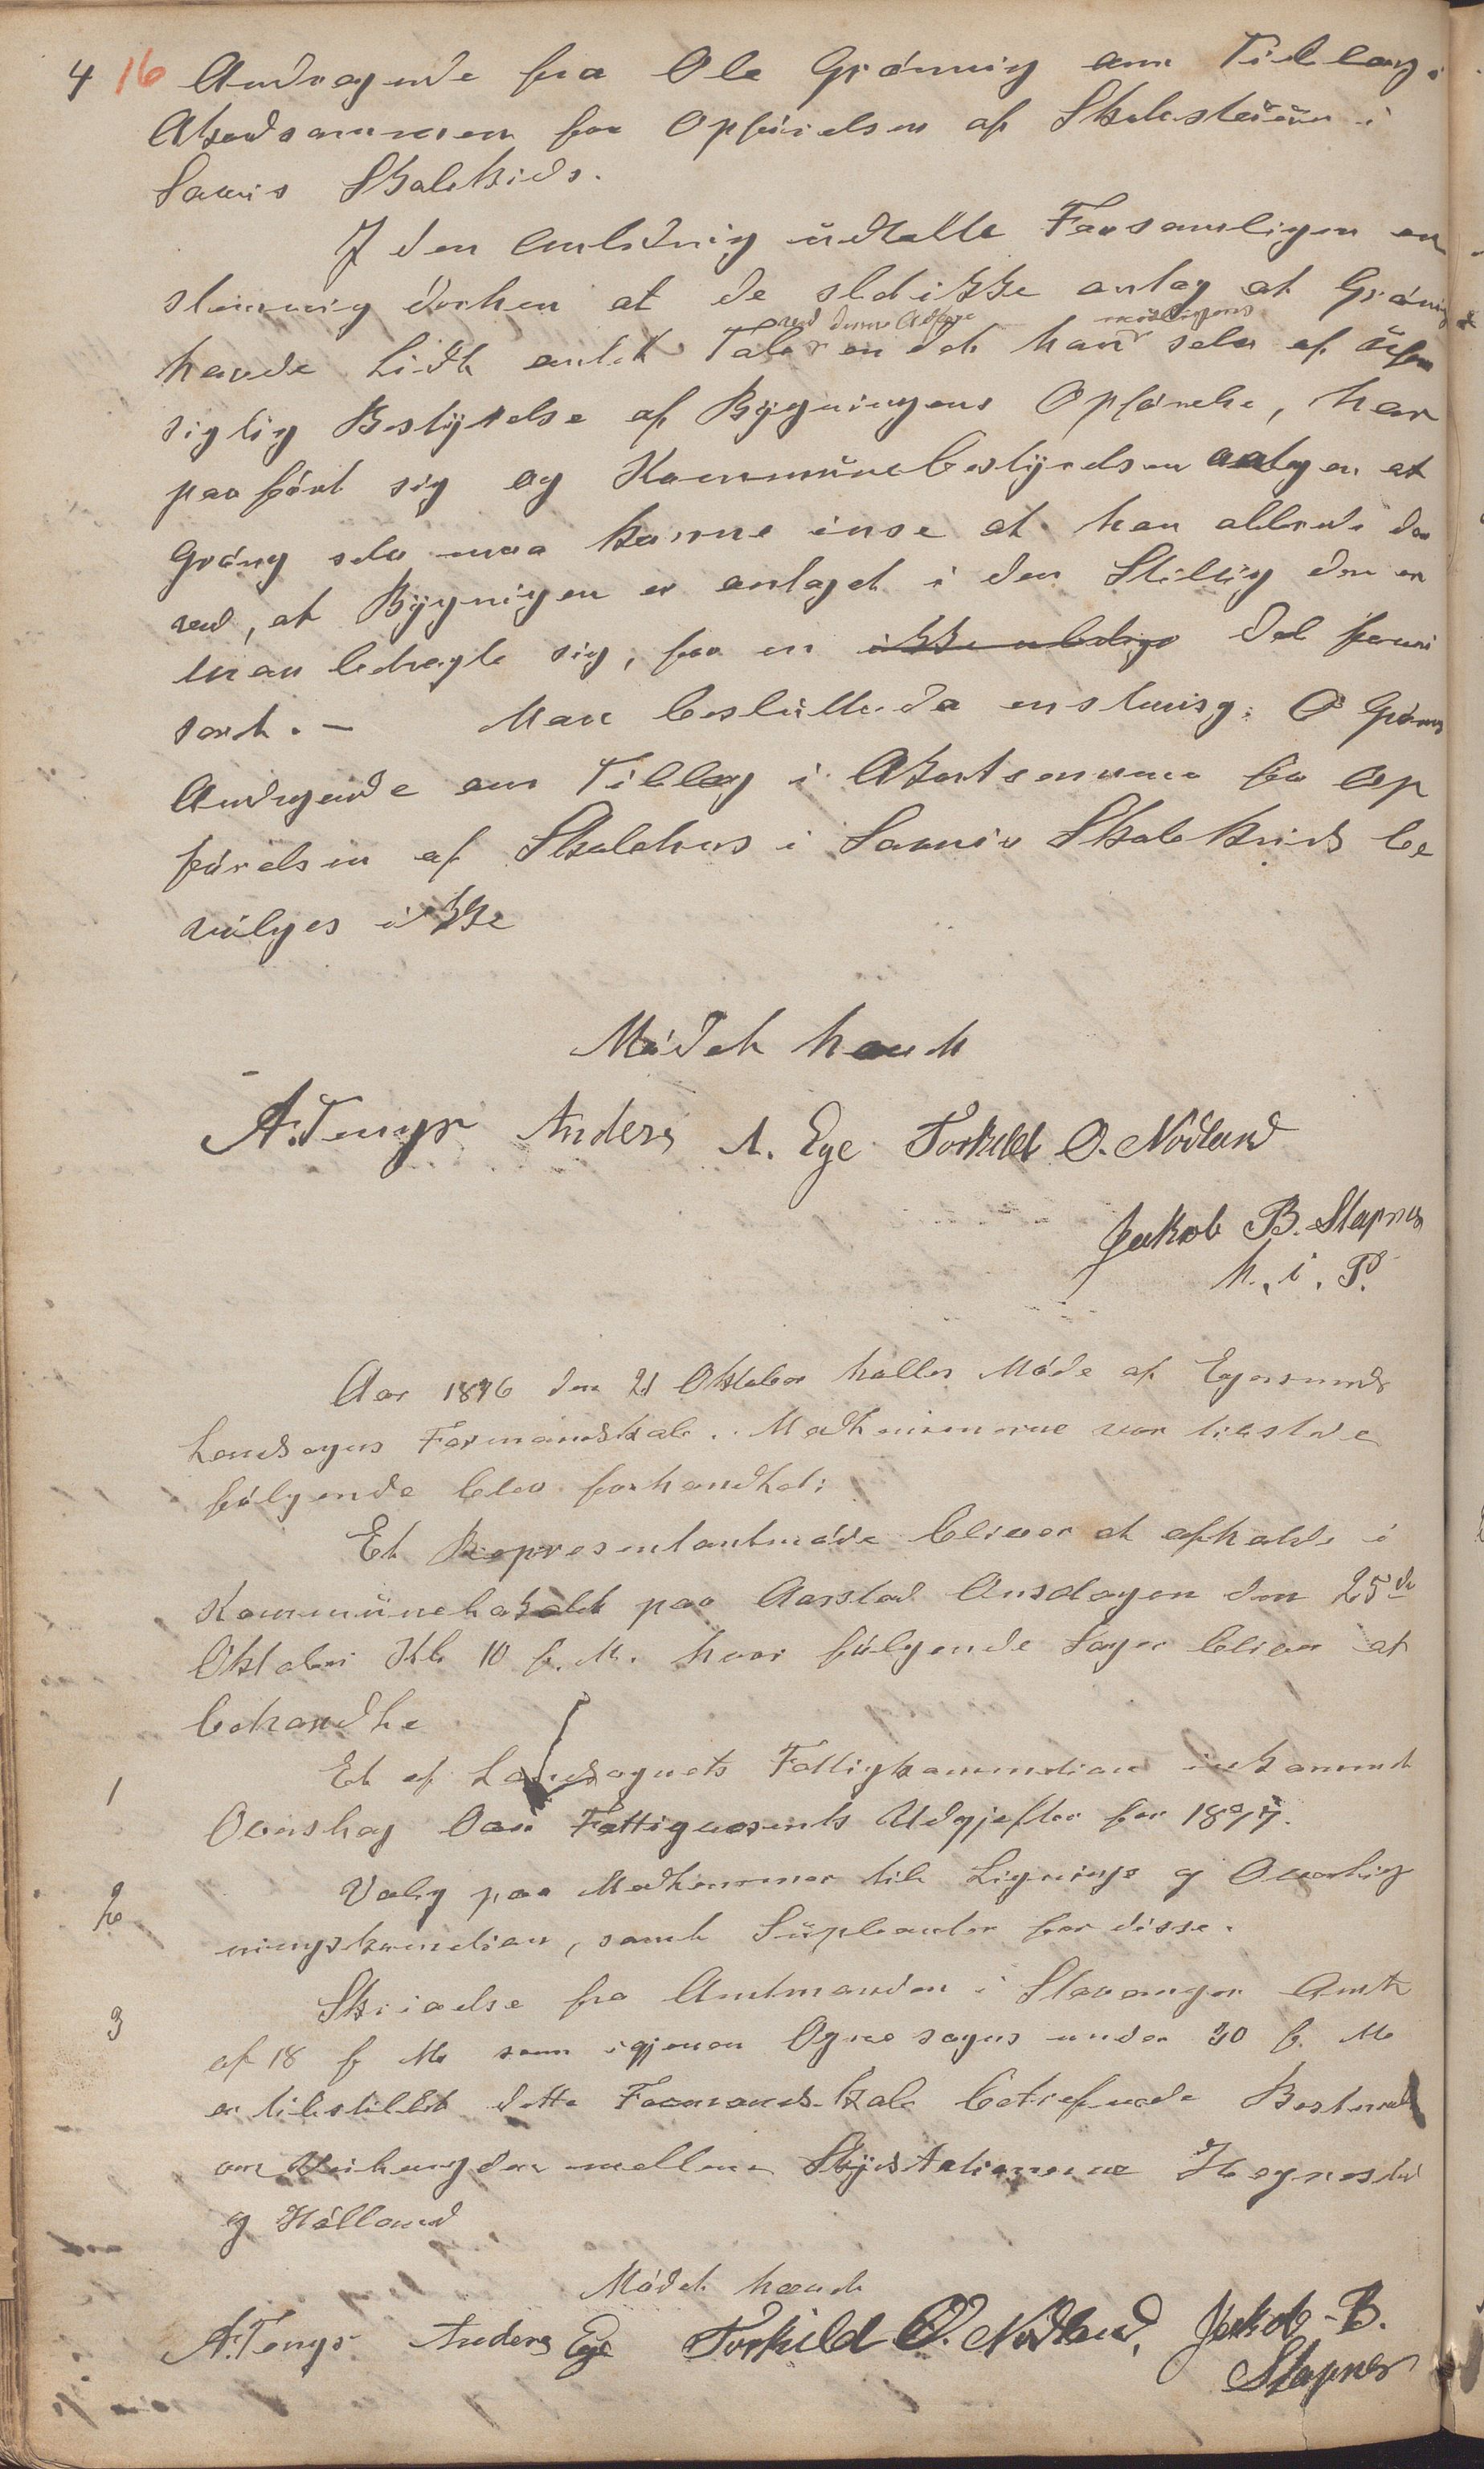 4 16 Andragende fra Ole Gröning om Tillæg i
Akordsummen for Opförelsen af Skolestuen i
Sævis Skolekrids.
I den Anledning udtalte Forsamligen en
stemmig derhen at de slet ikke antog at Gröning
ved denne Adfærd
havde Lidt andet Tab en det han selv af
sigtig Bestyrelse af Bygningens Opförelse, har
paafört sig og Kommunebestyrelsen antager at
Gröng selv maa kunne inse at han allerede der
ved, at Bygnigen er antaget i den Stillig den er
man betragte sig, for en ikke ubetyg Del
sort. – Man besluttede da enstemig: O Grönings
Andragende om Tillæg i Akortsummen for Op
förelsen af Skolehus i Sævis Skolekrids be
vilges ikke
Mödet hævet
A. Tengs Anders A. Ege Torkild O. Nödland
Jakob B. Slapnes
M. i. P.
Aar 1896 den 21 Oktober holtes Möde af Egersunds
Landsogns Formandskab. Medlemmerne var tilstede
fölgende blev forhandlet:
Et Representantmöde bliver at afholde i
Kommunelokalet paa Aarstad Onsdagen den 25de
Oktober Kl 10 f. M. hvor fölgende Sager bliver at
behandle
1 Et af Landsognets Fattigkommission inkommet
Overslag over Fattigvæsents Udgjefter for 1897.
2 Valg paa Medlemmer til Lignings og Overlig
ningskommission, samt Supleanter for disse.
3 Skrivelse fra Amtmanden i Stavanger Amt
af 18 f. M. som igjenem Ogne sogn under 30 f. M
er tilstillet dette Formandskab betrefende Bestemelse
om Veilengden mellem Skydstationerne Hegnestad
og Hölland
Mödet hævet
A. Tengs Anders Ege Torkild O. Nödland, Jakob B.
Slapnes